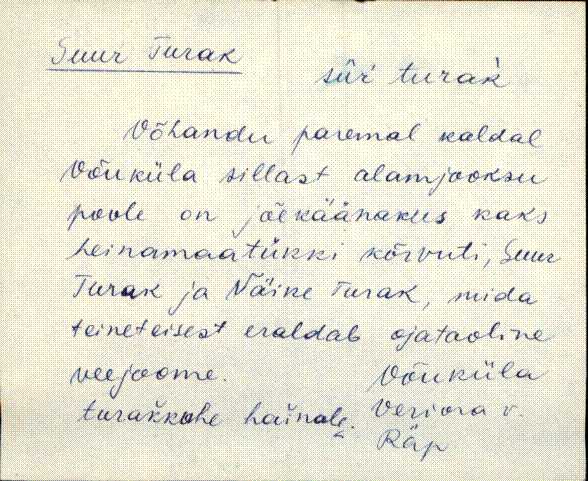 Suur Turak
süŕ turak
Võhandu paremal kaldal
Võuküla sillast alamjooksu
poole on jõekäänakus kaks
heinamaatükki kõrvuti, Suur
Turak ja Väike Turak, mida
teineteisest eraldab ojataoline
veejoome.
turakkohe hainale.
Võuküla
Veriora v.
Räp